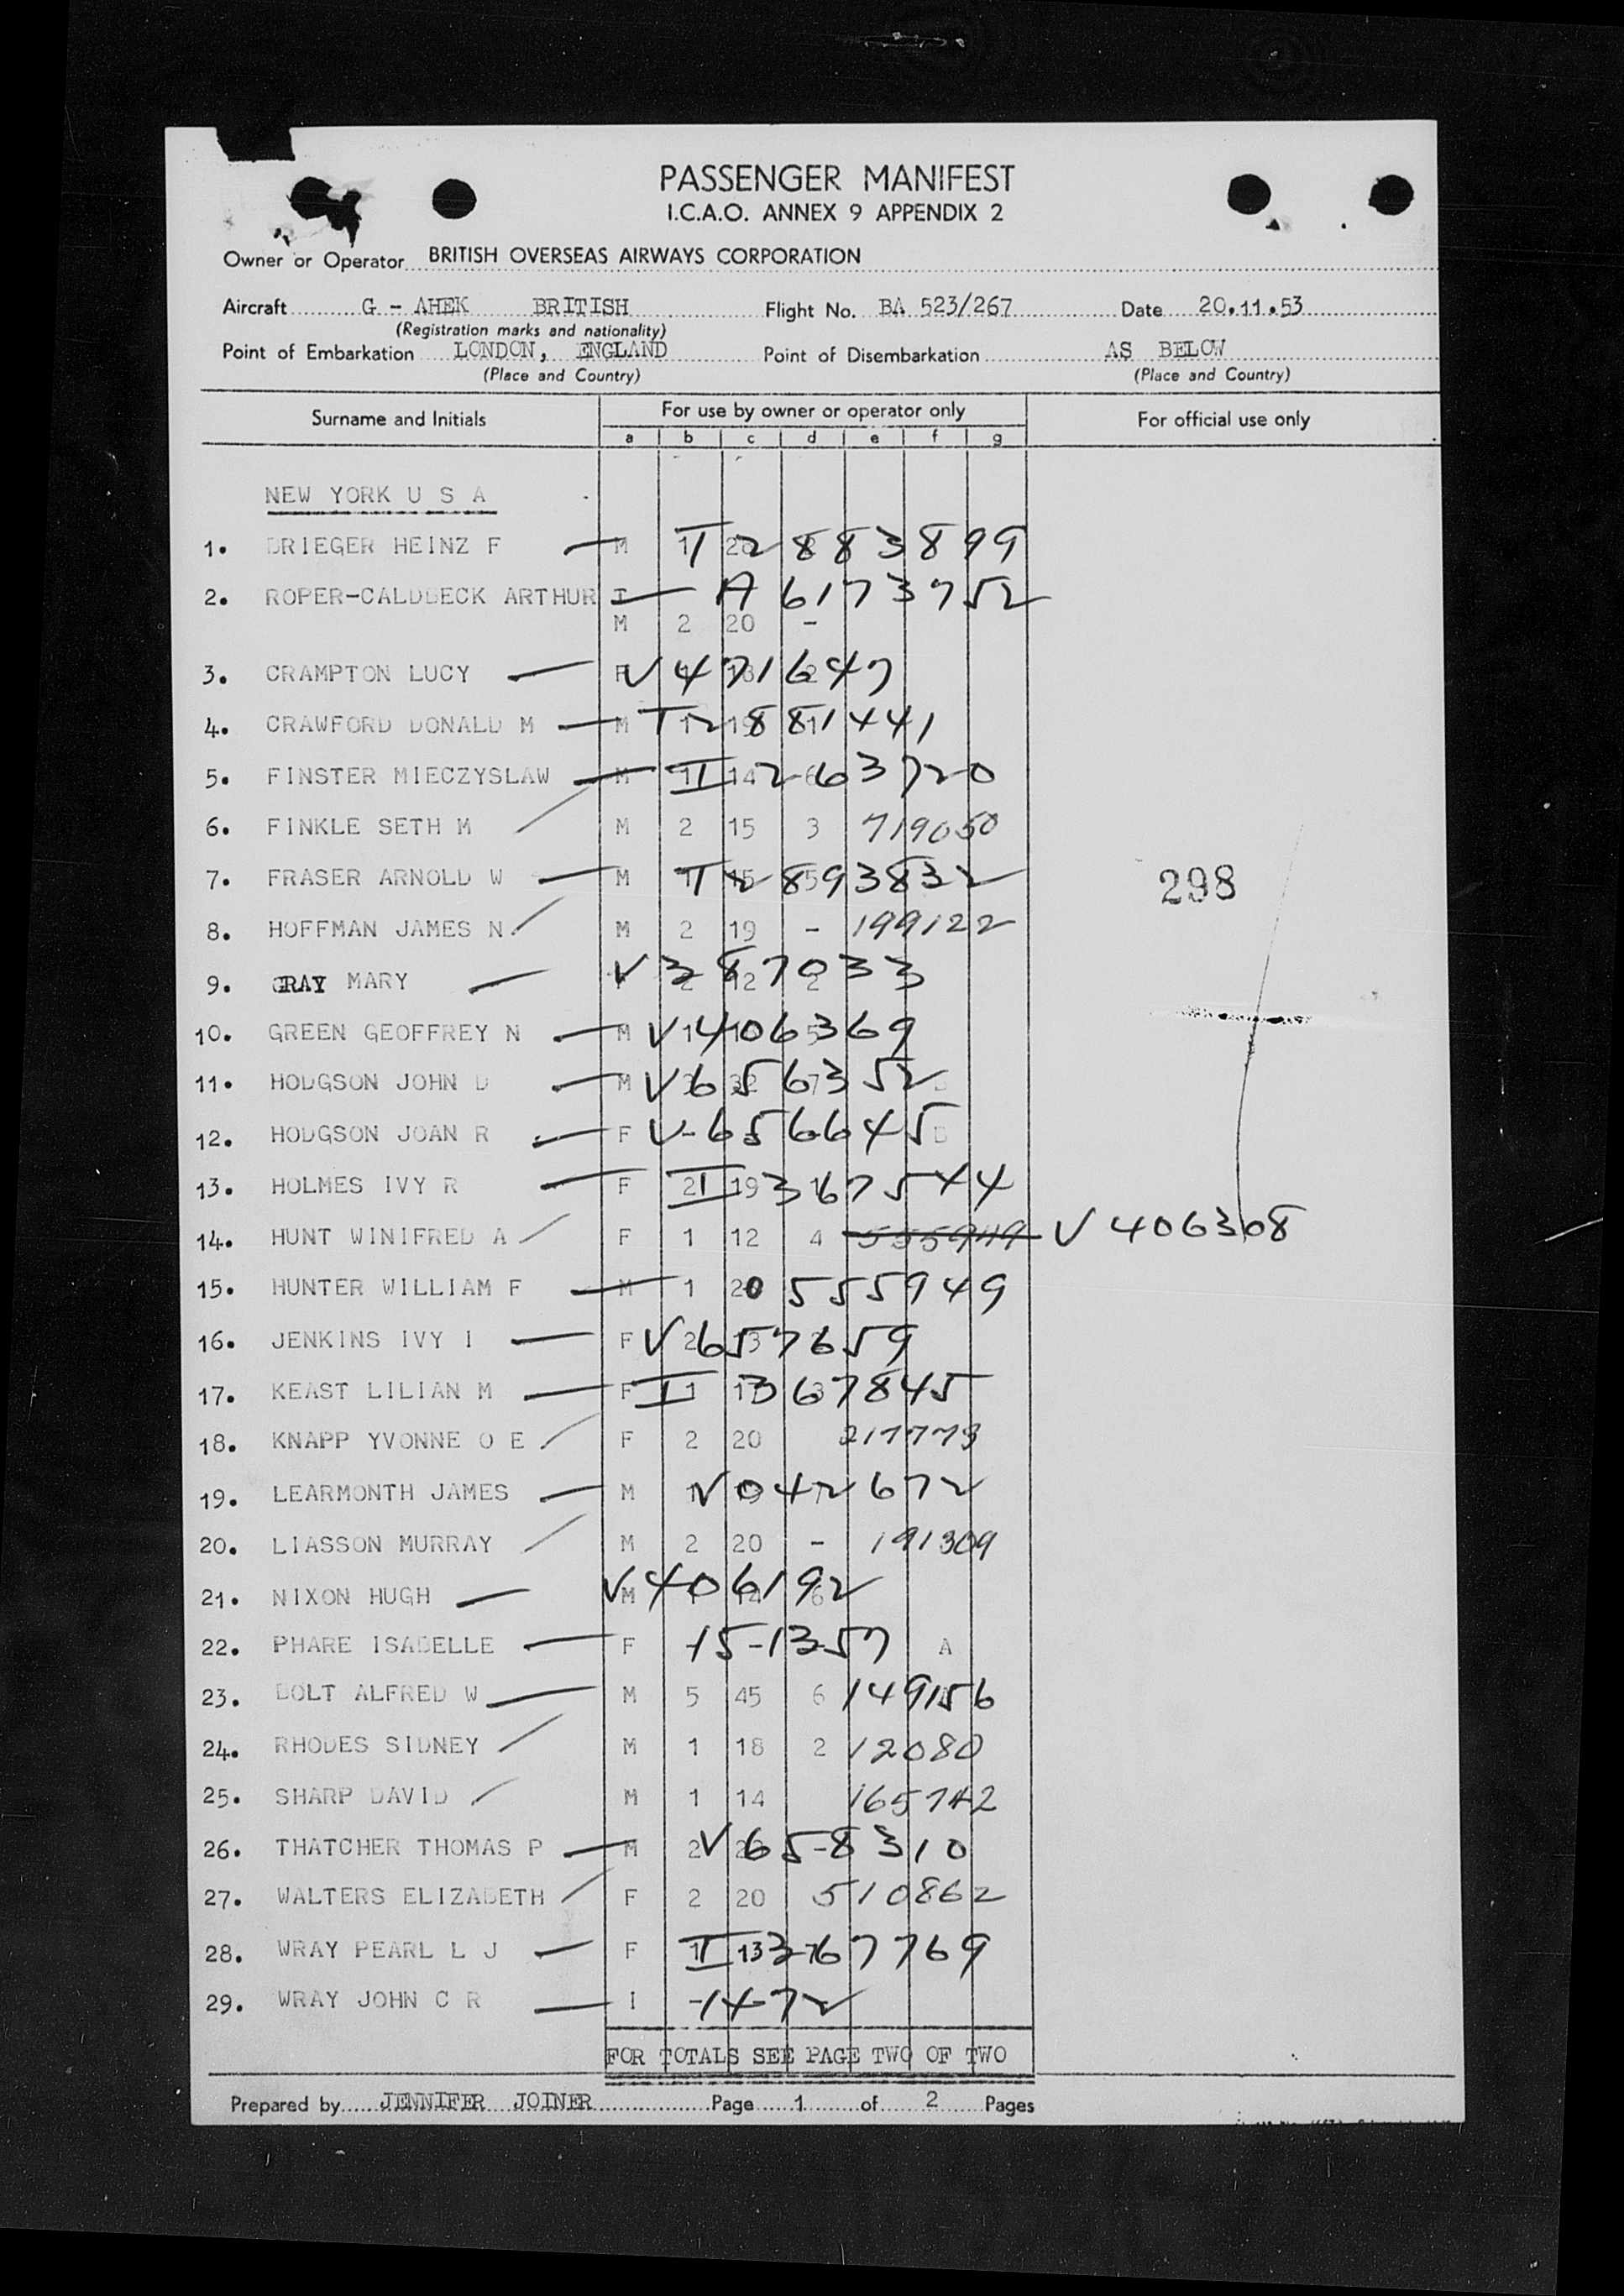 PASSENGER MANIFEST
I.C.A.O. ANNEX 9 APPENDIX 2
Owner or Operator BRITISH OVERSEAS AIRWAYS CORPORATION
Aircraft G - AHEK BRITISH Flight No. BA 523/267 Date 20.11.53
(Registration marks and nationality)
Point of Embarkation LONDON, ENGLAND Point of Disembarkation AS BELOW
(Place and Country) (Place and Country)
Surname and Initials For use by owner or operator only For official use only
a b c d e f g
NEW YORK U S A
1. DRIEGER HEINZ F M T2883899
2. ROPER-CALDBECK ARTHUR I A6173752
M 2 20 -
3. CRAMPTON LUCY F V471647
4. CRAWFORD DONALD M M T2881441
5. FINSTER MIECZYSLAW M I 263720
6. FINKLE SETH M M 2 15 3 719050
7. FRASER ARNOLD W M T2893832
298
8. HOFFMAN JAMES N M 2 19 - 199122
9. GRAY MARY V387033
10. GREEN GEOFFREY N M V1406369
11. HODGSON JOHN D M V656352
12. HODGSON JOAN R F V-656645
13. HOLMES IVY R F I 367544
14. HUNT WINIFRED A F 1 12 4 555949 V406308
15. HUNTER WILLIAM F M 1 20 555949
16. JENKINS IVY I F V657659
17. KEAST LILIAN M F I 367845
18. KNAPP YVONNE O E F 2 20 217773
19. LEARMONTH JAMES M V042672
20. LIASSON MURRAY M 2 20 - 191309
21. NIXON HUGH M V406192
22. PHARE ISABELLE F 15-13-57 A
23. BOLT ALFRED W M 5 45 6 149156
24. RHODES SIDNEY M 1 18 2 12080
25. SHARP DAVID M 1 14 165742
26. THATCHER THOMAS P M V65-8310
27. WALTERS ELIZABETH F 2 20 510862
28. WRAY PEARL L J F I 367769
29. WRAY JOHN C R I -1472
FOR TOTALS SEE PAGE TWO OF TWO
Prepared by JENNIFER JOINER Page 1 of 2 Pages